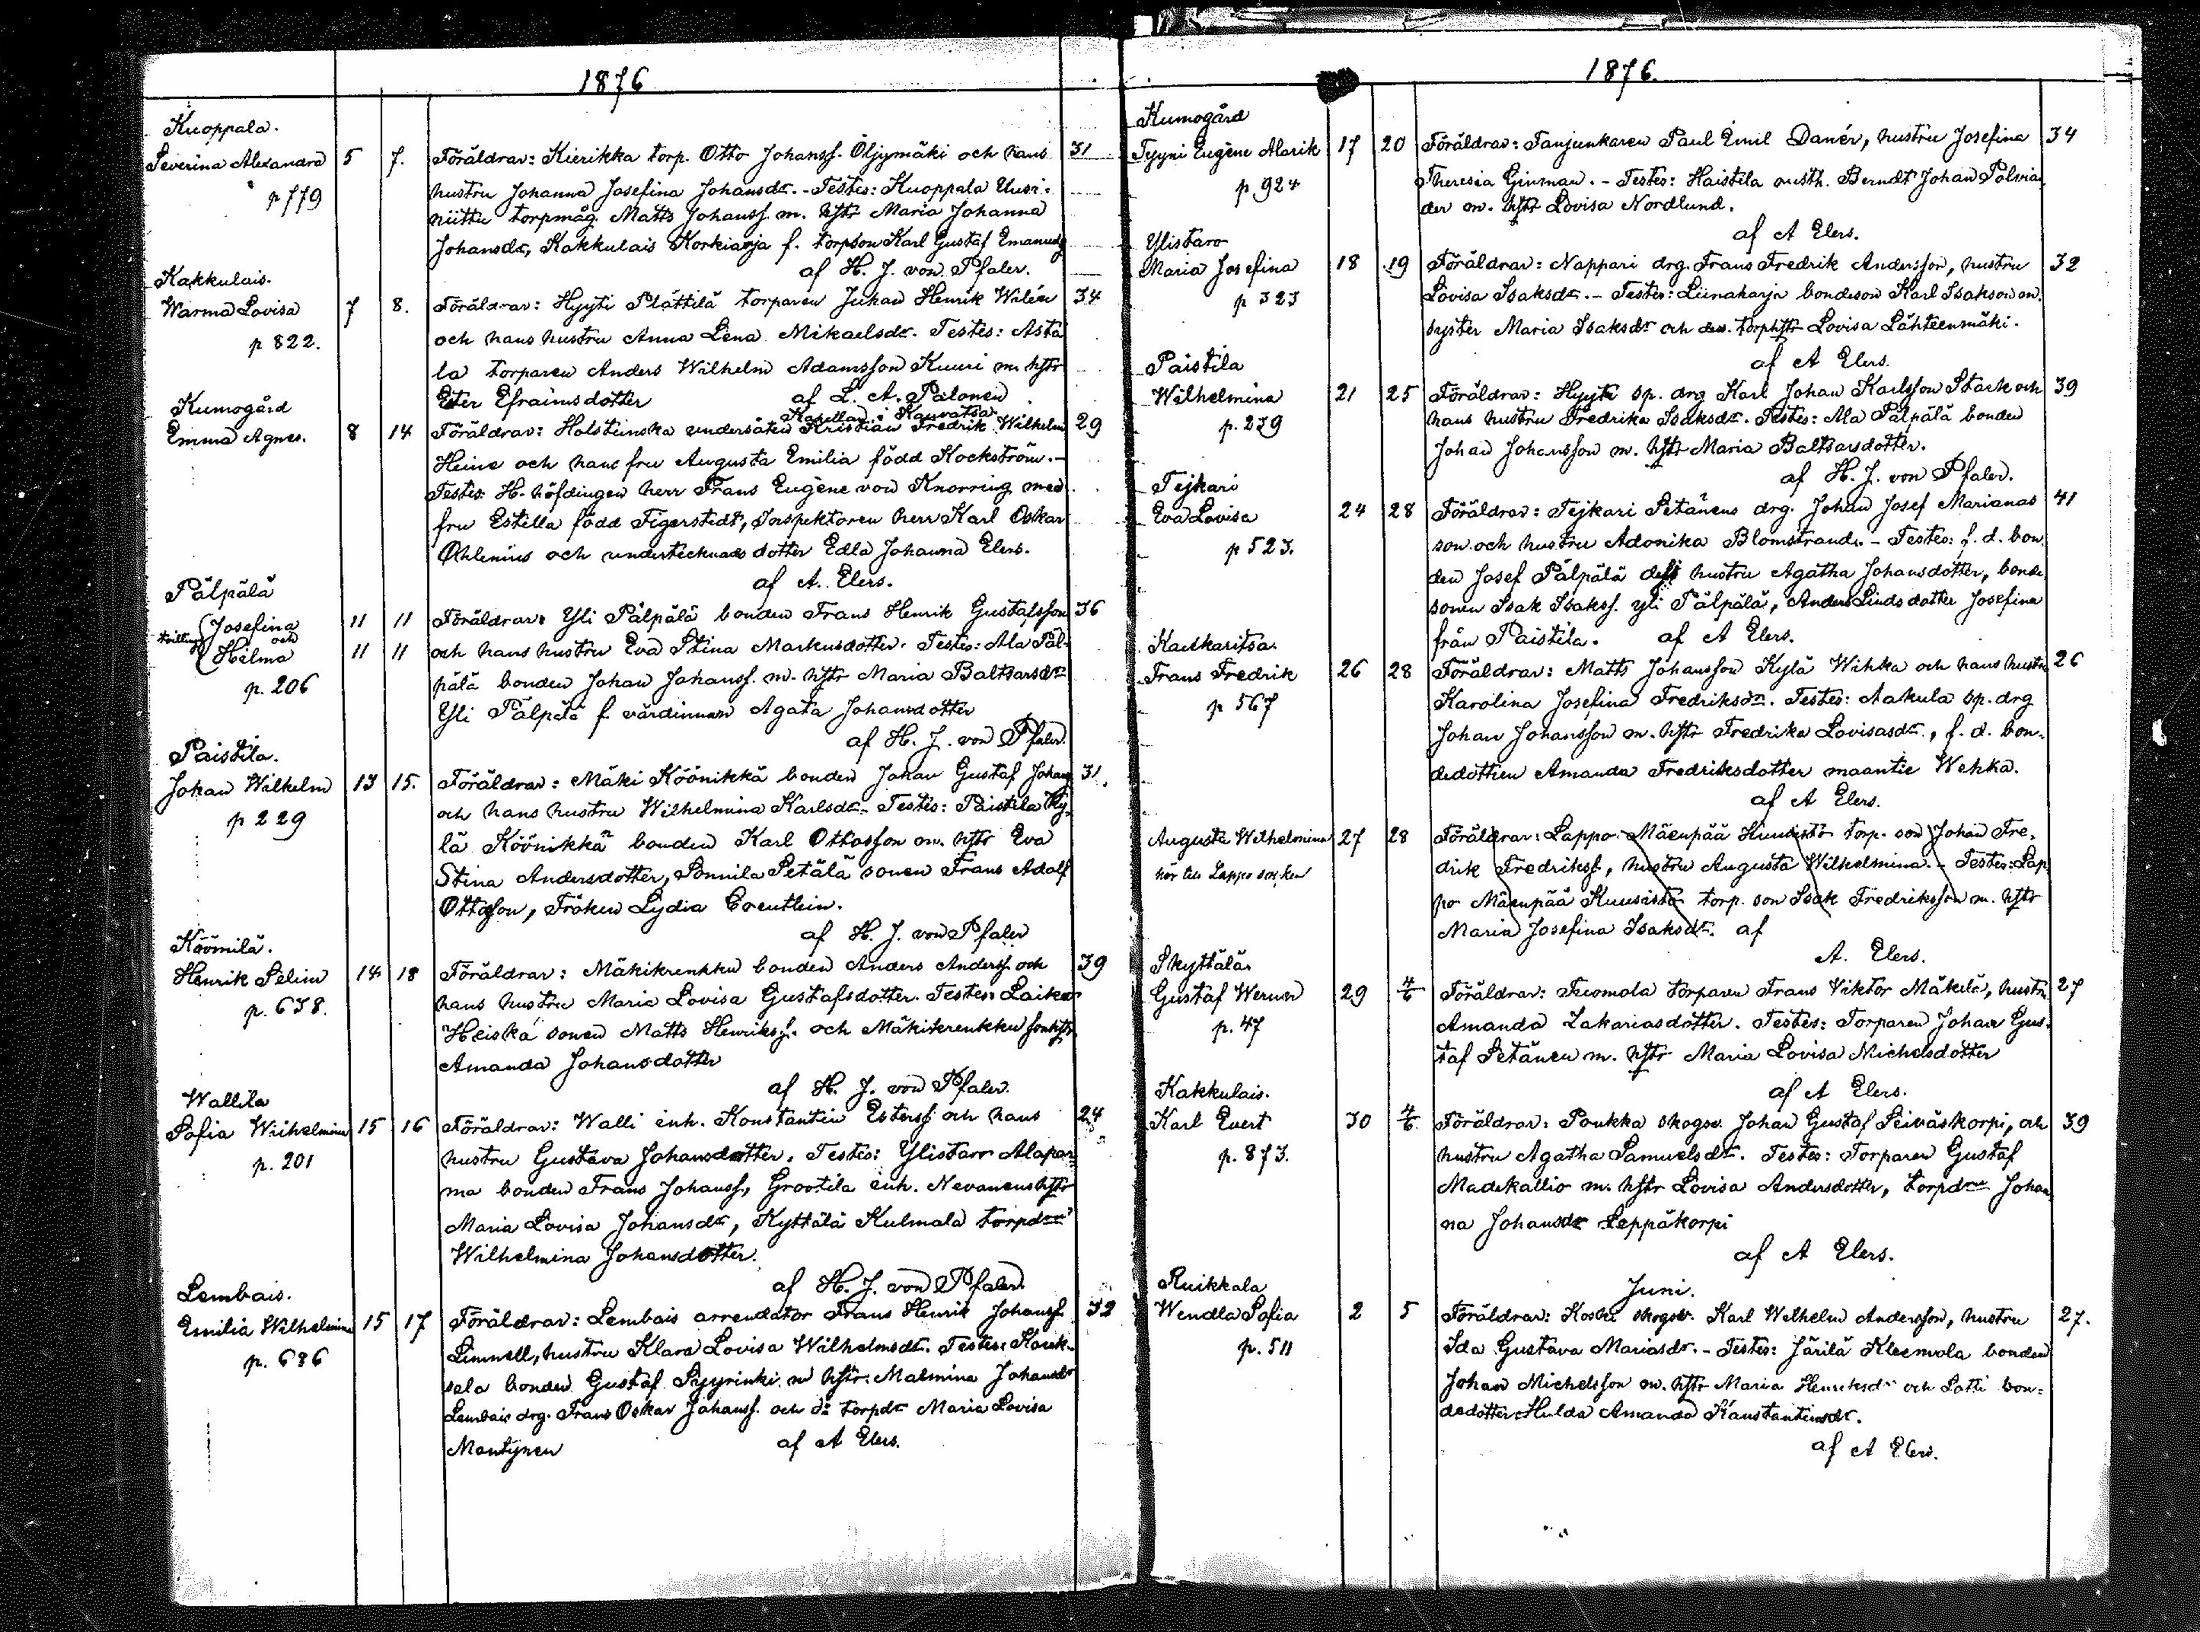 1876
Kuoppala.
Severina Alexandra 5 7. Föräldrar: Kierikka torp. Otto Johanss. Öljymäki och hans 31
p 779 hustru Johanna Josefina Johansdr. - Testes: Kuoppala Uusi-
niittu torpmåg Matts Johanss. m. hstr Maria Johanna
Johansdr, Kakkulais Korkiaoja f. torpson Karl Gustaf Emanuels
af H. J. von Pfaler.
Kakkulais.
Warma Lovisa 7 8. Föräldrar: Hyyti Plättilä torparen Juhan Henrik Walén 34
p 822. och hans hustru Anna Lena Mikaelsdr. Testes: Asta
la torparen Anders Wilhelm Adamsson Kuuri m. hstr
Ester Efraimsdotter af L. A. Palonen
Kapellan i Kauvatsa
Kumogård
Emma Agnes. 8 14 Föräldrar: Holsteinska undersåten Kristian Fredrik Wilhelm 29
Heine och hans fru Augusta Emilia född Kockström. -
Testes: H. höfdingen herr Frans Eugène von Knorring med
fru Estella född Tigerstedt, Inspektoren herr Karl Oskar
Öhlenius och undertecknads dotter Edla Johanna Elers.
af A. Elers.
Pälpälä
Josefina 11 11 Föräldrar: Yli Pälpälä bonden Frans Henrik Gustafsson 36
tvillingar och
Hilma 11 11 och hans hustru Eva Stina Markusdotter. Testes: Ala Päl-
p. 206 pälä bonden Johan Johanss. m. hstr Maria Baltsarsdr
Yli Pälpälä f. värdinnan Agata Johansdotter
af H. J. von Pfaler.
Paistila.
Johan Wilhelm 13 15. Föräldrar: Mäki Köönikkä bonden Johan Gustaf Johans 31.
p 229 och hans hustru Wilhelmina Karlsdr. - Testes: Paistila Ky-
lä Köönikkä bonden Karl Ottosson m. hstr Eva
Stina Andersdotter, Sonnila Petälä sonen Frans Adolf
Ottosson, Fröken Lydia
af H. J. von Pfaler
Köömilä.
Henrik Selim 14 18 Föräldrar: Mäkikrenkku bonden Anders Anderss. och 39
p. 638. hans hustru Maria Lovisa Gustafsdotter. Testes:
Heiska sonen Matts Henrikss. och Mäkikrenkku sonhstr
Amanda Johansdotter
af H. J. von Pfaler.
Wallila
Sofia Wilhelmina 15 16 Föräldrar: Walli inh. Konstantin Esterss. och hans 24
p. 201 hustru Gustava Johansdotter. Testes: Ylistaro Alapar-
ma bonden Frans Johanss., Grootila inh. Nevanens hstr
Maria Lovisa Johansdr, Kyttälä Kulmala torpdrn
Wilhelmina Johansdotter.
af H. J. von Pfaler.
Lembais.
Emilia Wilhelmina 15 17 Föräldrar: Lembais arrendator Frans Henrik Johanss. 32
p. 686 Limnell, hustru Klara Lovisa Wilhelmsdr. Testes:
sala bonden Gustaf Pyyrinki m hstr. Malmina Johansdr
Lembais drg. Frans Oskar Johanss. och do torpdr Maria Lovisa
Mantynen af A Elers.
1876.
Kumogård
Tyyni Eugène Alarik 17 20 Föräldrar: Fanjunkaren Paul Emil Danér, hustru Josefina 34
p. 924 Theresia Ginman. - Testes: Haistila Berndt Johan Polvian
der m. hstr Lovisa Nordlund.
af A Elers.
Ylistaro
Maria Josefina 18 19 Föräldrar: Nappari drg. Frans Fredrik Andersson, hustru 32
p 323 Lovisa Isaksdr. - Testes: Liinaharja bondeson Karl Isaksson m.
syster Maria Isaksdr och torphstr Lovisa Lähteenmäki.
af A Elers.
Paistila
Wilhelmina 21 25 Föräldrar: Hyyti sp. drg Karl Johan Karlsson Stark och 39
p. 239 hans hustru Fredrika Isaksdr. Testes: Ala Pälpälä bonden
Johan Johansson m. hstr Maria Baltsarsdotter.
af H. J. von Pfaler.
Tejkari
Eva Lovisa 24 28 Föräldrar: Tejkari Petänens drg. Johan Josef Marianas 41
p 523. son och hustru Adonika Blomstrand. - Testes: f. d. bon-
den Josef Pälpälä dess hustru Agatha Johansdotter, bonde
sonen Isak Isakss. yli Pälpälä, Anders Linds dotter Josefina
från Paistila. af A Elers.
Kaukaritsa
Frans Fredrik 26 28 Föräldrar: Matts Johansson Kylä Wihka och hans hustru 26
p 567 Karolina Josefina Fredriksdr. Testes: Aakula sp. drg
Johan Johansson m. hstr Fredrika Lovisasdr., f. d. bon-
dedottren Amanda Fredriksdotter maantie Wehka.
af A Elers.
Augusta Wilhelmina 27 28 Föräldrar: Lappo Mäenpää Kuusisto torp. son Johan Fre-
hör till Lappo socken drik Fredrikss., hustru Augusta Wilhelmina. - Testes: Lap-
po Mäenpää Kuusisto torp. son Isak Fredriksson m. hstr
Maria Josefina Isaksdr. af
A. Elers.
Skyttälä
Gustaf Werner 29 4/6 Föräldrar: Tuomola torparen Frans Viktor Mäkelä, hustru 27
p. 47 Amanda Zakariasdotter. Testes: Torparen Johan Gus-
taf Petänen m. hstr Maria Lovisa Michelsdotter
af A Elers.
Kakkulais.
Karl Evert 30 4/6 Föräldrar: Poukka skogsv. Johan Gustaf Seiväskorpi, och 39
p. 873. hustru Agatha Samuelsdr. Testes: Torparen Gustaf
Madekallio m. hstr Lovisa Andersdotter, torpdrn Johan-
na Johansdr Leppäkorpi
af A Elers.
Juni.
Ruikkala
Wendla Sofia 2 5 Föräldrar: Koski skogsv. Karl Wilhelm Andersson, hustru 27.
p. 511 Ida Gustava Mariasdr. - Testes: Järilä Kleemola bonden
Johan Michelsson m. hstr Maria Henriksdr och Potti bon-
dedotter Hulda Amanda Konstantinsdr.
af A Elers.